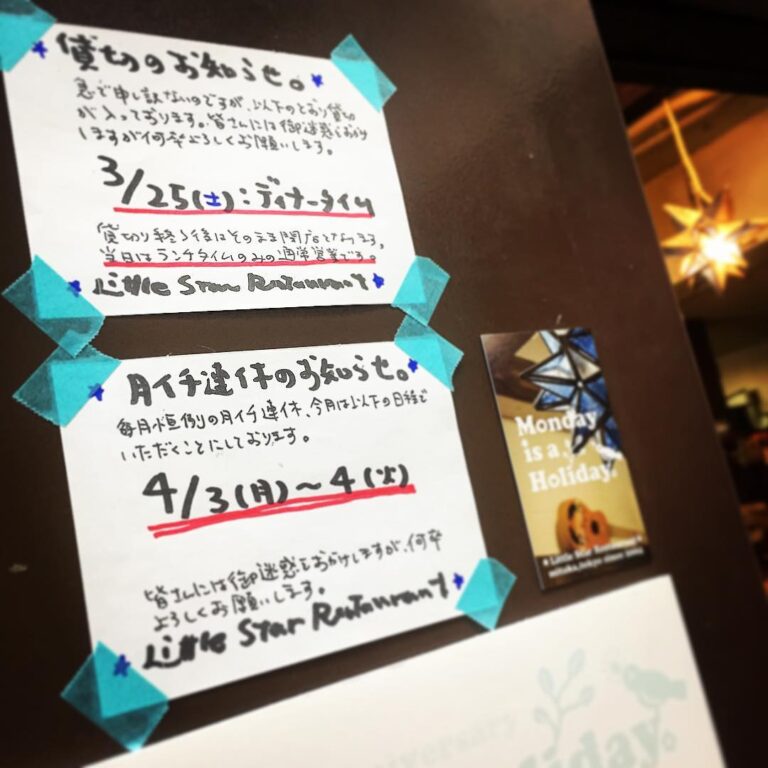 貸切のお知らせ。
急で申し訳ないのですが、以下のとおり貸切
が入っております。皆さんには御迷惑をおかけ
しますが何卒よろしくお願いします。
3/25(土):ディナータイム
貸切り終了後はそのまま閉店となります。
当日はランチタイムのみの通常営業です。
Little Star Restaurant
月イチ連休のお知らせ。
毎月恒例の月イチ連休、今月は以下の日程で
いただくことにしております。
4/3(月)~4(火)
皆さんには御迷惑をおかけしますが、何卒
よろしくお願いします。
Little Star Restaurant
Monday
is a
Holiday.
Little Star Restaurant
mitaka,tokyo since 2004
niversary
oliday.